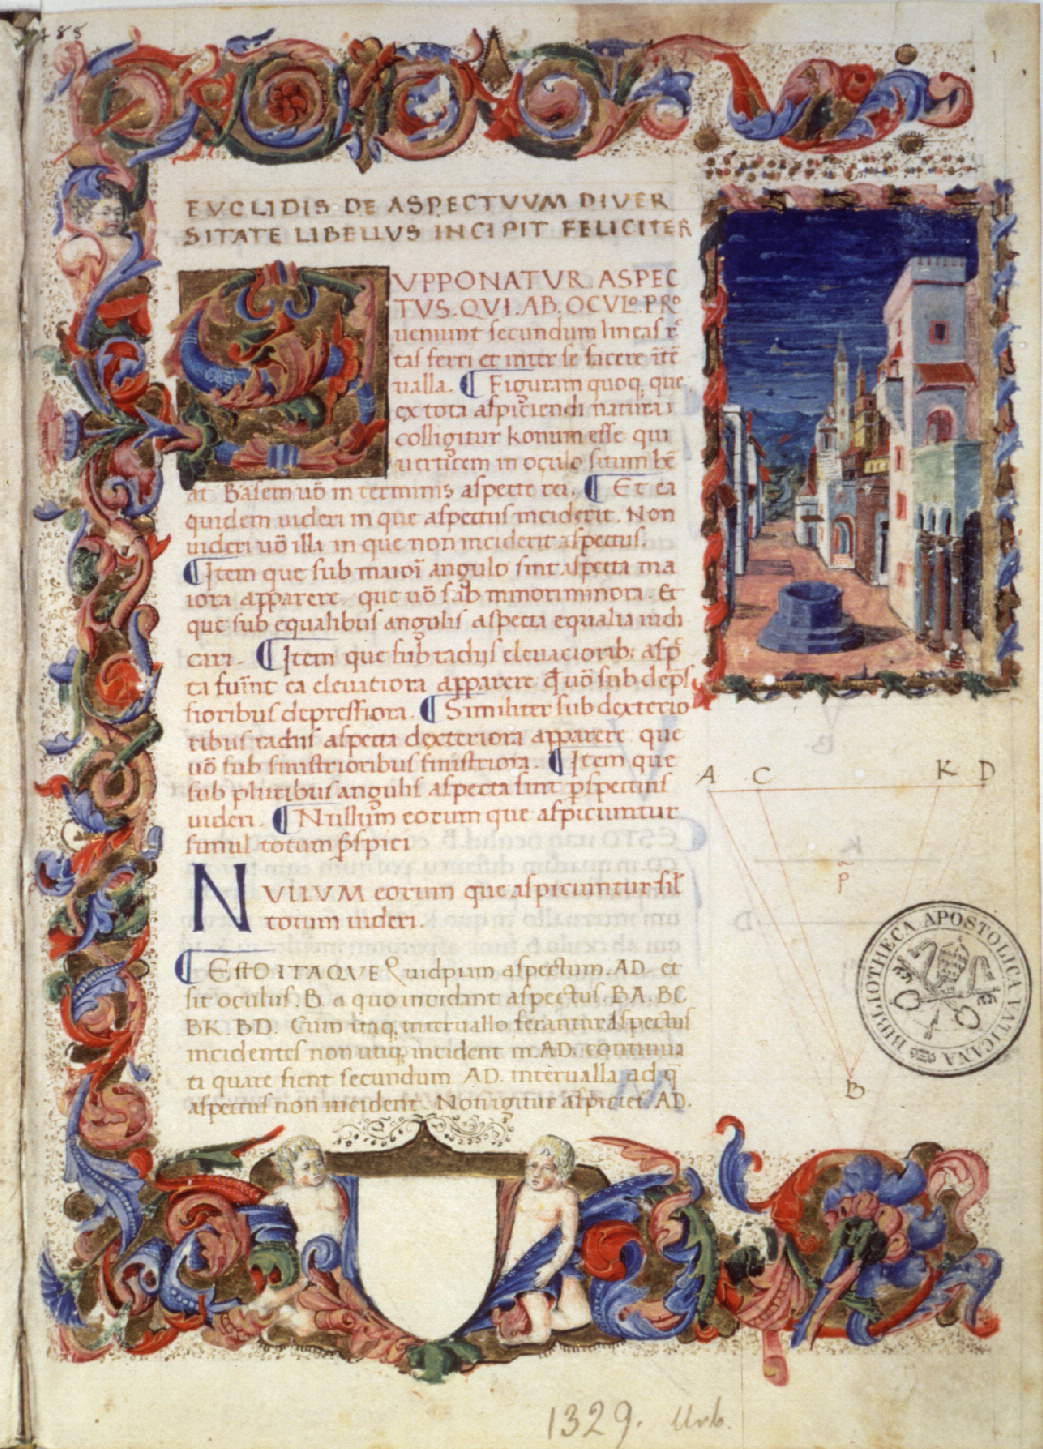 EVCLIDIS DE ASPECTVVM DIVER
SITATE LIBELLVS INCIPIT FELICITER
SVPPONATVR ASPEC
TVS. QVI. AB. OCVLo. PRo
ueniunt secundum lineas
tas ferri et inter se facere
ualla. Figuram quoq; que
ex tota aspiciendi natura
colligitur konum esse qui
uerticem in oculo situm hẽ
at. Basem uõ in terminis aspecte rei. Et ea
quidem uideri in que aspectus inciderit. Non
uideri uõ illa in que non inciderit aspectus.
Item que sub maiori angulo sint aspecta ma
iora apparere. que uõ sub minori minora. Et
que sub equalibus angulis aspecta equalia indi
cari. Item que sub radijs eleuatiorib; asp
ta fuĩnt ea eleuatiora apparere q̃ uõ sub dep̃s
sioribus depressiora. Similiter sub dexterio
ribus radiis aspecta dexteriora apparere que
uõ sub sinistrioribus sinistriora. Item que
sub pluribus angulis aspecta sint p̃spectius
uideri. Nullum eorum que aspiciuntur
simul totum p̃spici
NVLLVM eorum que aspiciuntur sil
totum uideri.
ESTO ITAQVE Quidpiam aspectum. AD. et
sit oculus. B. a quo incidant aspectus. BA. BC
BK. BD. Cum itaq; interuallo ferantur aspectus
incidentes non utiq; incident in. AD. continua
ti quare fient secundum AD. interualla ad q̃
aspectus non incident. Non igitur aspiciet. AD.
A C K D
B
BIBLIOTHECA APOSTOLICA VATICANA
1329. Urb.